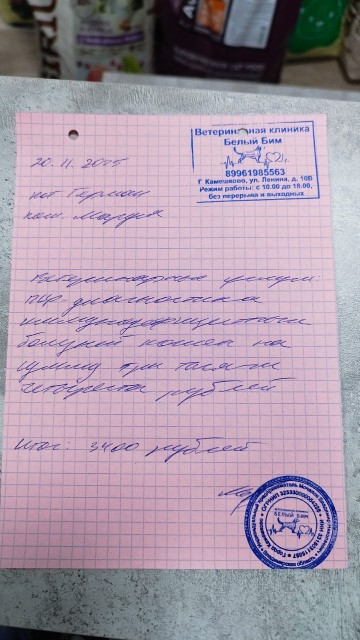 Ветеринарная клиника
Белый Бим
89961985563
Г Камешково, ул. Ленина, д. 10В
Режим работы: с 10.00 до 18.00,
без перерыва и выходных
20.11.2025
кот Герман
кош. Маруся
Ветеринарные услуги:
ПЦР диагностика
иммунодефицитных
болезней кошек на
сумму три тысячи
четыреста рублей
Итог: 3400 рублей